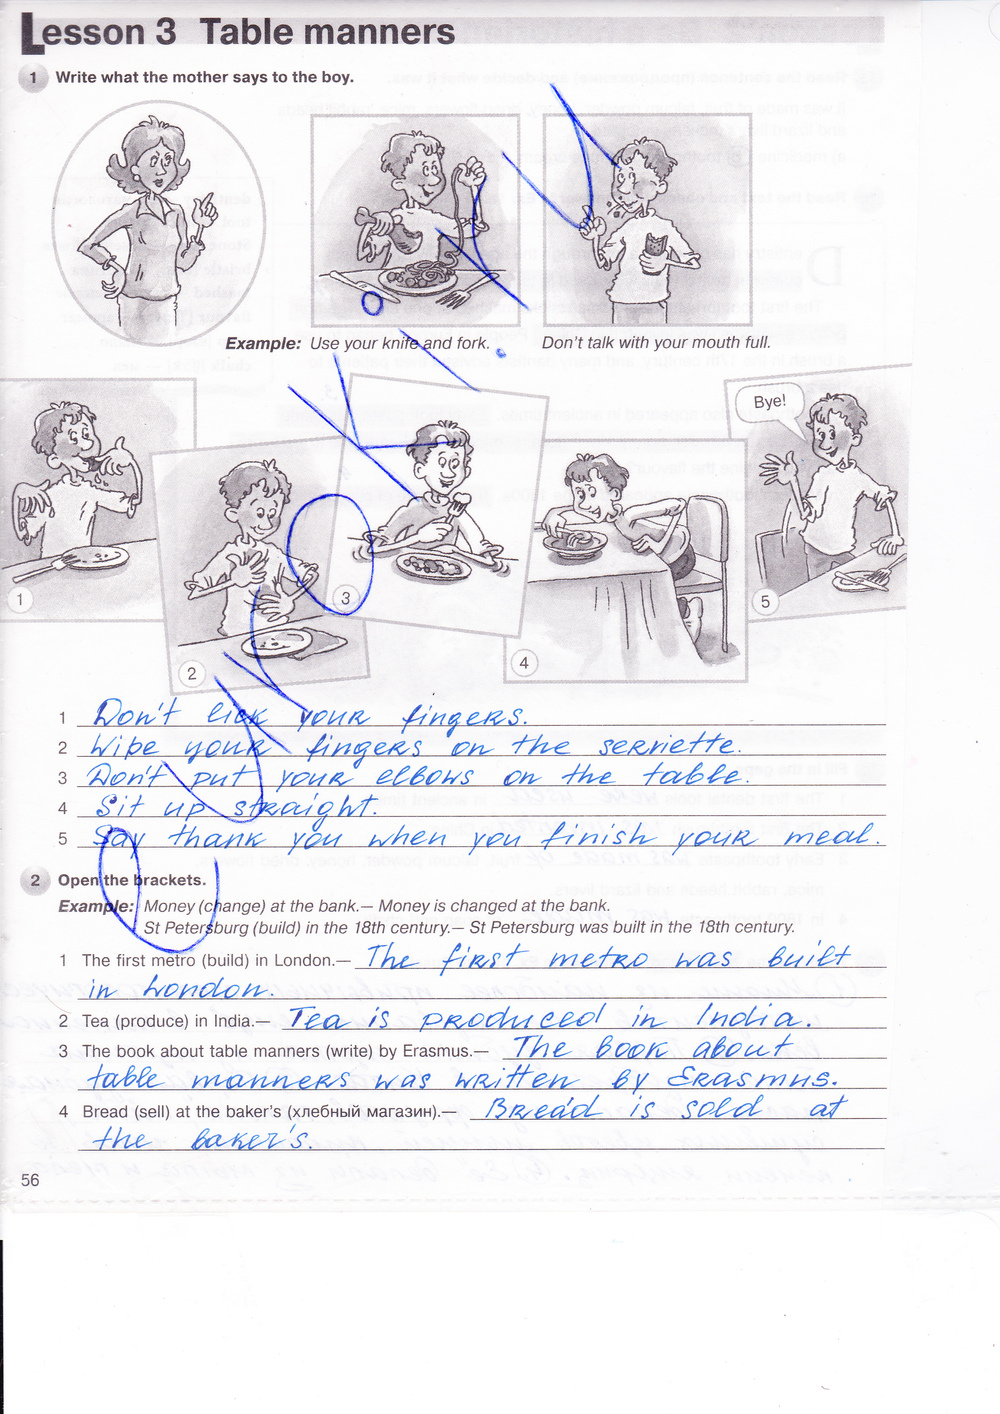 Lesson 3 Table manners
1 Write what the mother says to the boy.
Example: Use your knife and fork. Don't talk with your mouth full.
Bye!
1
2
3
4
5
1 Don't lick your fingers.
2 Wipe your fingers on the serviette.
3 Don't put your elbows on the table.
4 Sit up straight.
5 Say thank you when you finish your meal.
2 Open the brackets.
Example: Money (change) at the bank.— Money is changed at the bank.
St Petersburg (build) in the 18th century.— St Petersburg was built in the 18th century.
1 The first metro (build) in London.— The first metro was built
in London.
2 Tea (produce) in India.— Tea is produced in India.
3 The book about table manners (write) by Erasmus.— The book about
table manners was written by Erasmus.
4 Bread (sell) at the baker's (хлебный магазин).— Bread is sold at
the baker's.
56